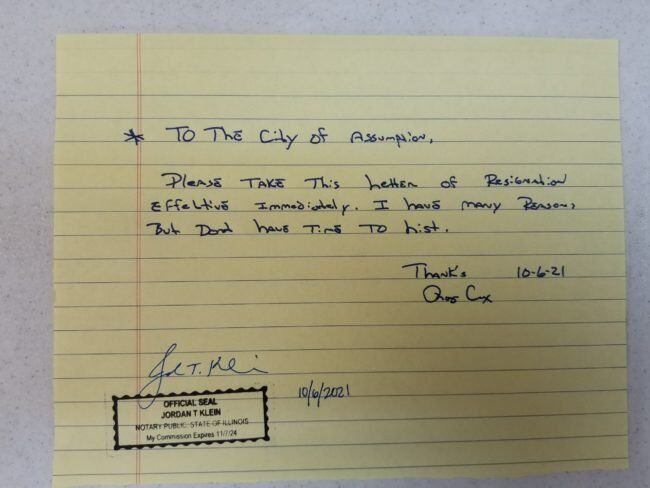 * TO THE City of Assumption,
Please TAKE This Letter of Resignation
Effective Immediately. I have many Reasons,
But Dont have Time TO List.
Thank's 10-6-21
Cox
Jordan T. Klein
10/6/2021
OFFICIAL SEAL
JORDAN T KLEIN
NOTARY PUBLIC, STATE OF ILLINOIS
My Commission Expires 11/7/24